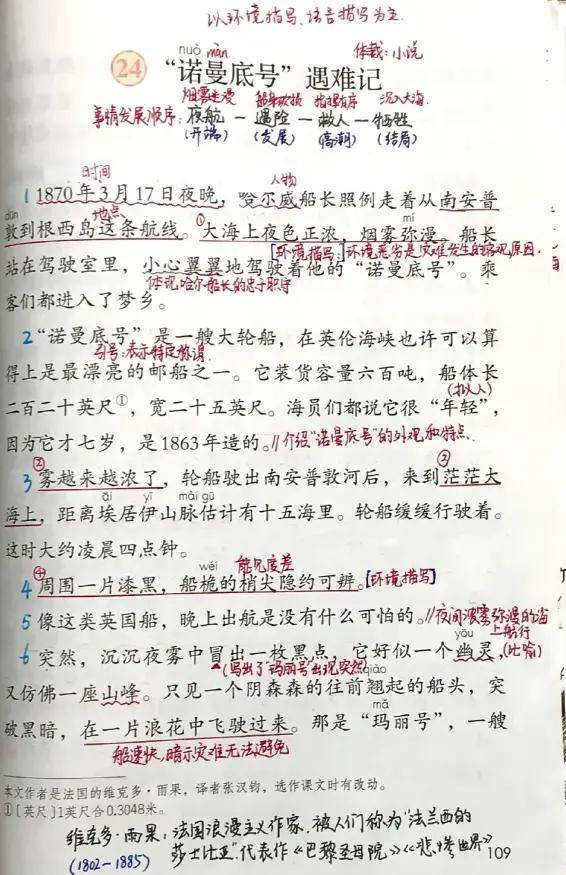 以环境描写、语言描写为主.
nuò màn
体裁:小说
24 “诺曼底号”遇难记
烟雾迷漫 船身破损 指挥有序 沉入大海
事情发展顺序:夜航—遇险—救人—牺牲
(开端) (发展) (高潮) (结局)
时间 人物
1 1870年3月17日夜晚,哈尔威船长照例走着从南安普
dūn 地点 mí
敦到根西岛这条航线。①大海上夜色正浓,烟雾弥漫。船长
[环境描写:]环境恶劣是灾难发生的客观原因.
站在驾驶室里,小心翼翼地驾驶着他的“诺曼底号”。乘
体现哈尔船长的忠于职守
客们都进入了梦乡。
2 “诺曼底号”是一艘大轮船,在英伦海峡也许可以算
引号:表示特定称谓
得上是最漂亮的邮船之一。它装货容量六百吨,船体长
(拟人)
二百二十英尺①,宽二十五英尺。海员们都说它很“年轻”,
因为它才七岁,是1863年造的。//介绍“诺曼底号”的外观和特点.
② ③
3 雾越来越浓了,轮船驶出南安普敦河后,来到茫茫大
āi yī mài gū
海上,距离埃居伊山脉估计有十五海里。轮船缓缓行驶着。
这时大约凌晨四点钟。
④ wéi 能见度差
4 周围一片漆黑,船桅的梢尖隐约可辨。[环境描写]
5 像这类英国船,晚上出航是没有什么可怕的。//夜间浓雾弥漫的海
上航行
yōu
6 突然,沉沉夜雾中冒出一枚黑点,它好似一个幽灵,(比喻)
(写出了“玛丽号”出现突然) qiào
又仿佛一座山峰。只见一个阴森森的往前翘起的船头,突
mǎ
破黑暗,在一片浪花中飞驶过来。那是“玛丽号”,一艘
船速快,暗示灾难无法避免
本文作者是法国的维克多·雨果,译者张汉钧,选作课文时有改动。
①〔英尺〕1英尺合0.3048米。
维克多·雨果:法国浪漫主义作家,被人们称为“法兰西的
(1802-1885) 莎士比亚”.代表作《巴黎圣母院》《悲惨世界》
109